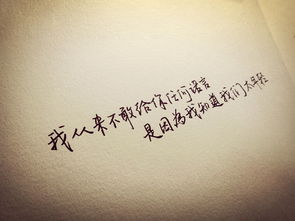 我从来不敢给你任何诺言
是因为我知道我们太年轻